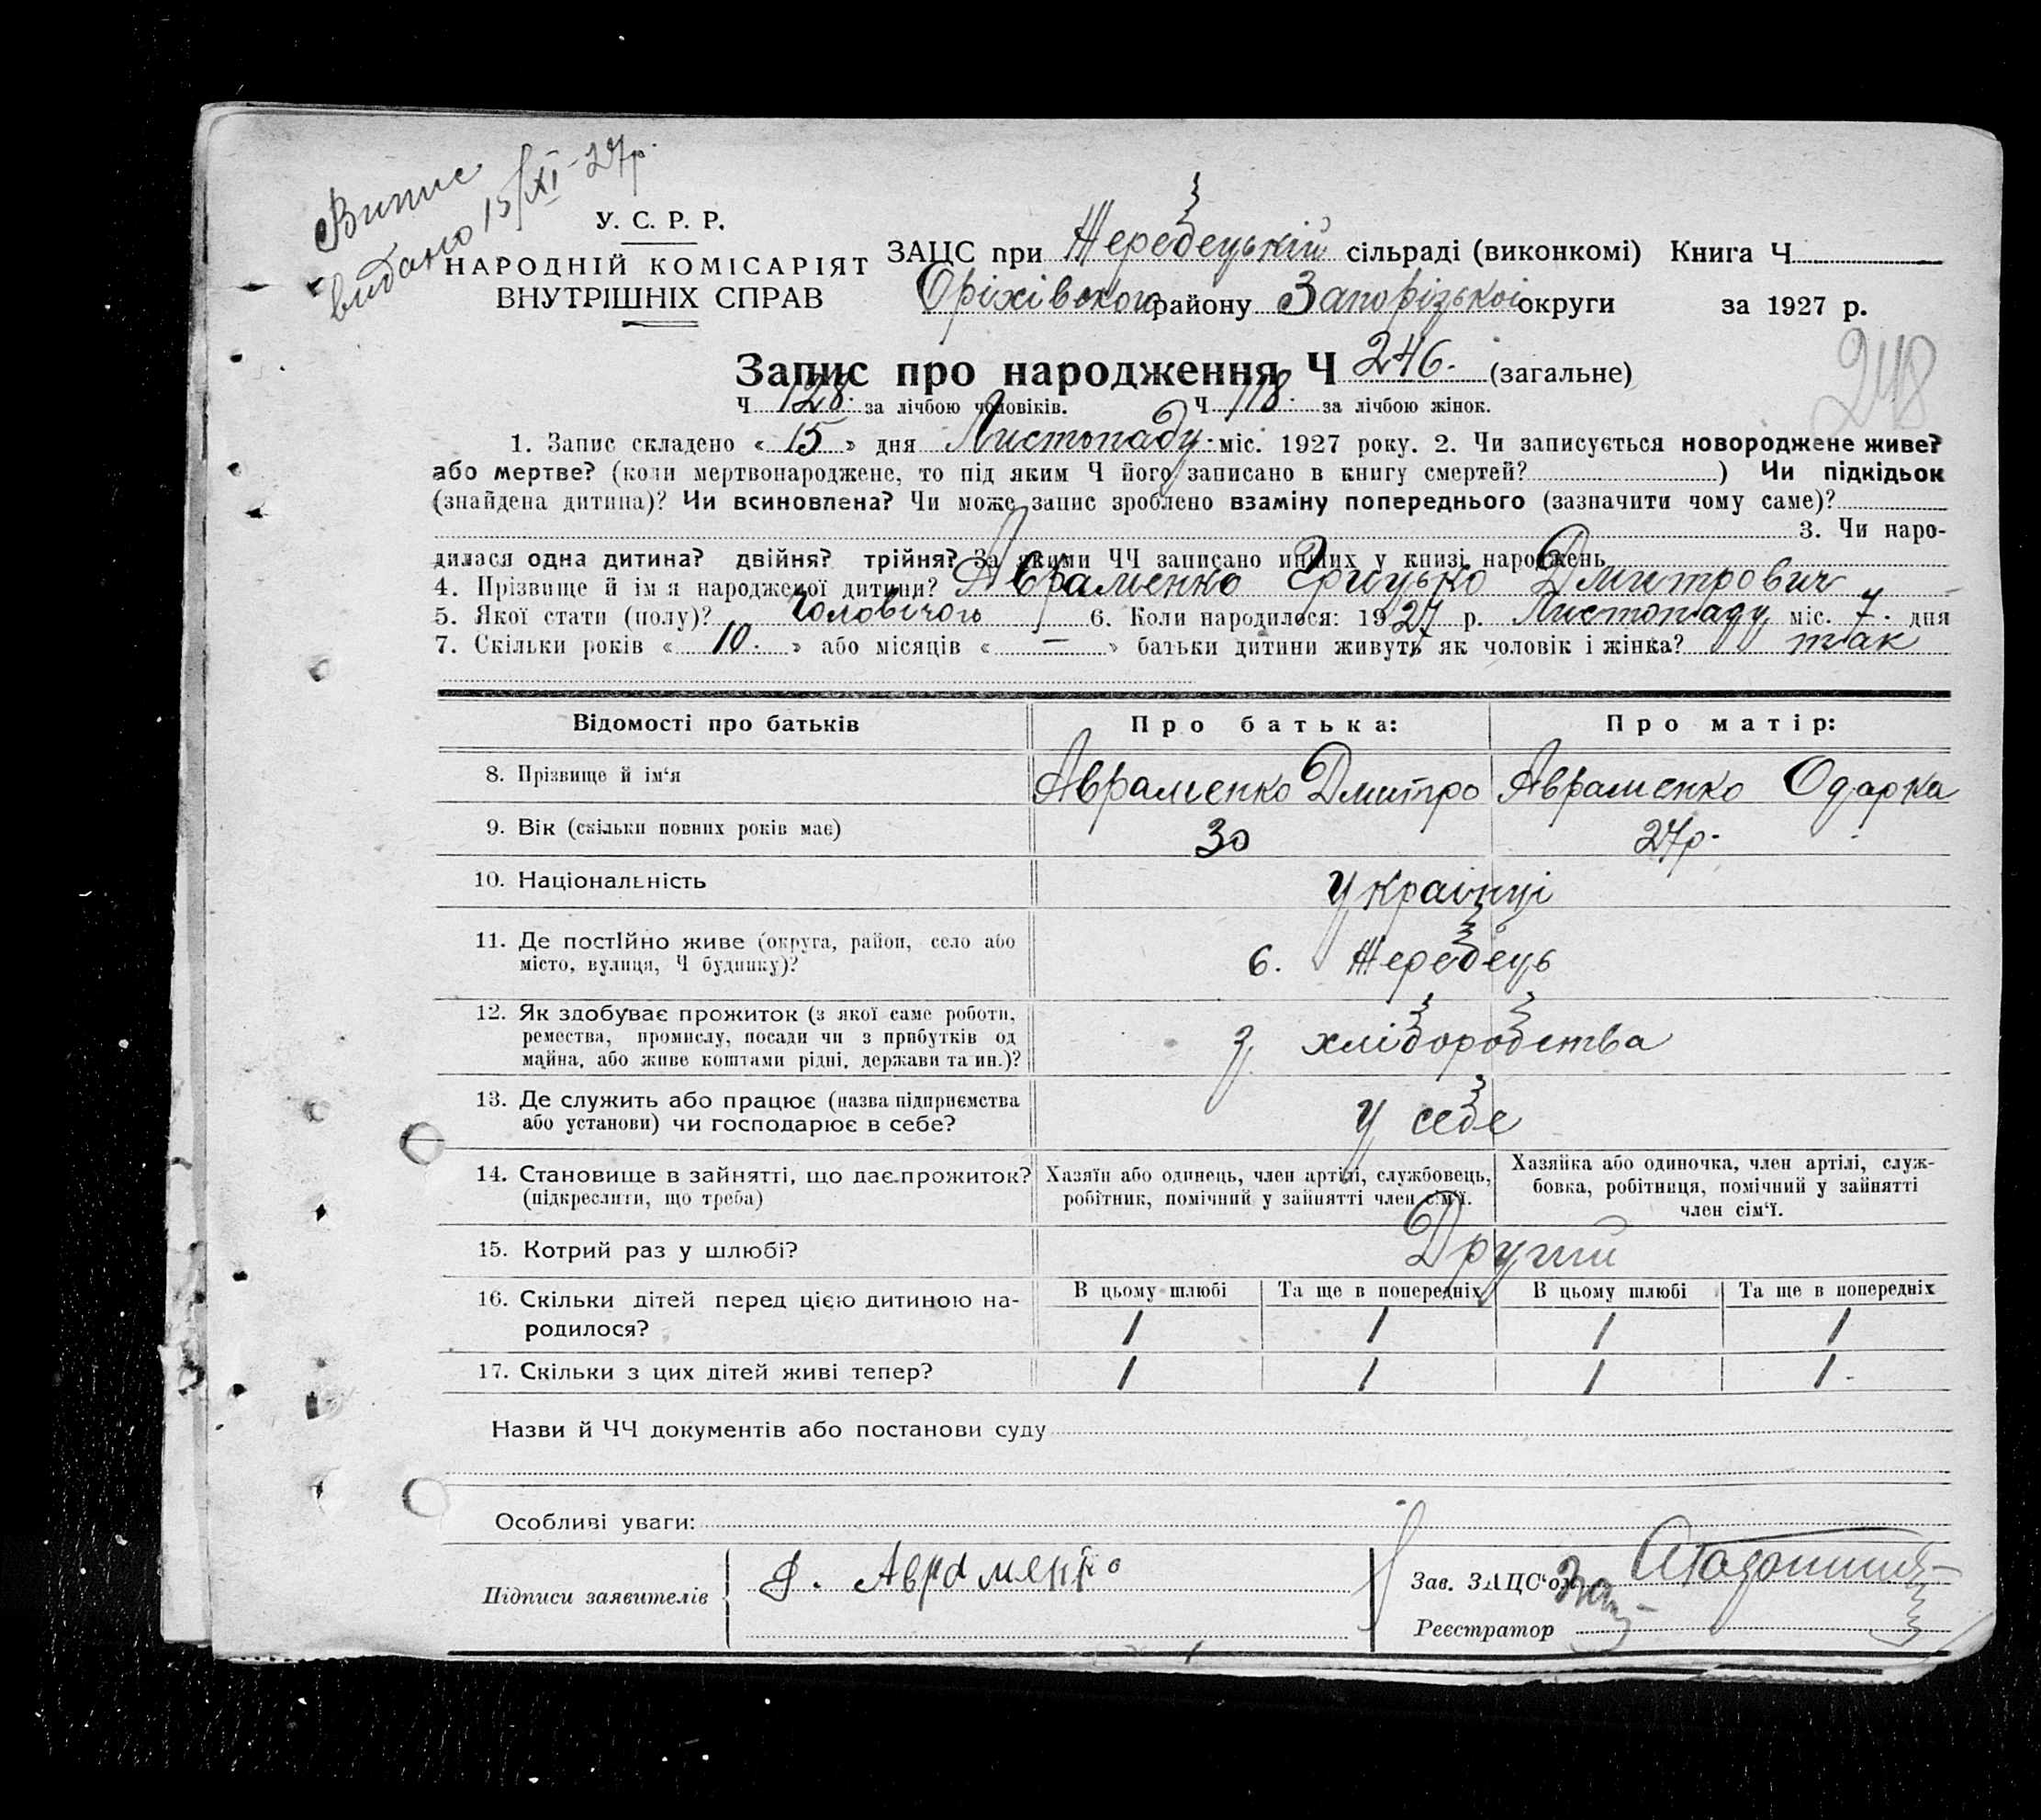 Випис
видано 15/XI-27р.
У. С. Р. Р.
НАРОДНІЙ КОМІСАРІЯТ
ВНУТРІШНІХ СПРАВ
ЗАЦС при Жеребецькій сільраді (виконкомі) Книга Ч
Оріхівського району Запорізької округи за 1927 р.
248
Запис про народження Ч 246. (загальне)
Ч 128. за лічбою чоловіків. Ч 118. за лічбою жінок.
1. Запис складено « 15 » дня Листопаду міс. 1927 року. 2. Чи записується новороджене живе?
або мертве? (коли мертвонароджене, то під яким Ч його записано в книгу смертей? ) Чи підкідьок
(знайдена дитина)? Чи всиновлена? Чи може запис зроблено взаміну попереднього (зазначити чому саме)?
3. Чи наро-
дилася одна дитина? двійня? трійня? За якими ЧЧ записано инших у книзі народжень
4. Прізвище й ім я народженої дитини? Авраменко Грицько Дмитрович
5. Якої стати (полу)? Чоловічого 6. Коли народилося: 1927 р. Листопаду міс. 7. дня
7. Скільки років « 10. » або місяців « — » батьки дитини живуть як чоловік і жінка? так
Відомості про батьків Про батька: Про матір:
8. Прізвище й ім‘я Авраменко Дмитро Авраменко Одарка
9. Вік (скільки повних років має) 30 27р.
10. Національність Українці
11. Де постійно живе (округа, район, село або
місто, вулиця, Ч будинку)? с. Жеребець
12. Як здобуває прожиток (з якої саме роботи,
ремества, промислу, посади чи з прибутків од
майна, або живе коштами рідні, держави та ин.)? з хліборобства
13. Де служить або працює (назва підприємства
або установи) чи господарює в себе? у себе
14. Становище в зайнятті, що дає прожиток?
(підкреслити, що треба)
Хазяїн або одинець, член артілі, службовець,
робітник, помічний у зайнятті член сім‘ї.
Хазяйка або одиночка, член артілі, служ-
бовка, робітниця, помічний у зайнятті
член сім‘ї.
15. Котрий раз у шлюбі? Другий
В цьому шлюбі Та ще в попередніх В цьому шлюбі Та ще в попередніх
16. Скільки дітей перед цією дитиною на-
родилося? 1 1 1 1
17. Скільки з цих дітей живі тепер? 1 1 1 1.
Назви й ЧЧ документів або постанови суду
Особливі уваги:
Підписи заявителів Д. Авраменко
Зав. ЗАЦС‘ом
Реєстратор